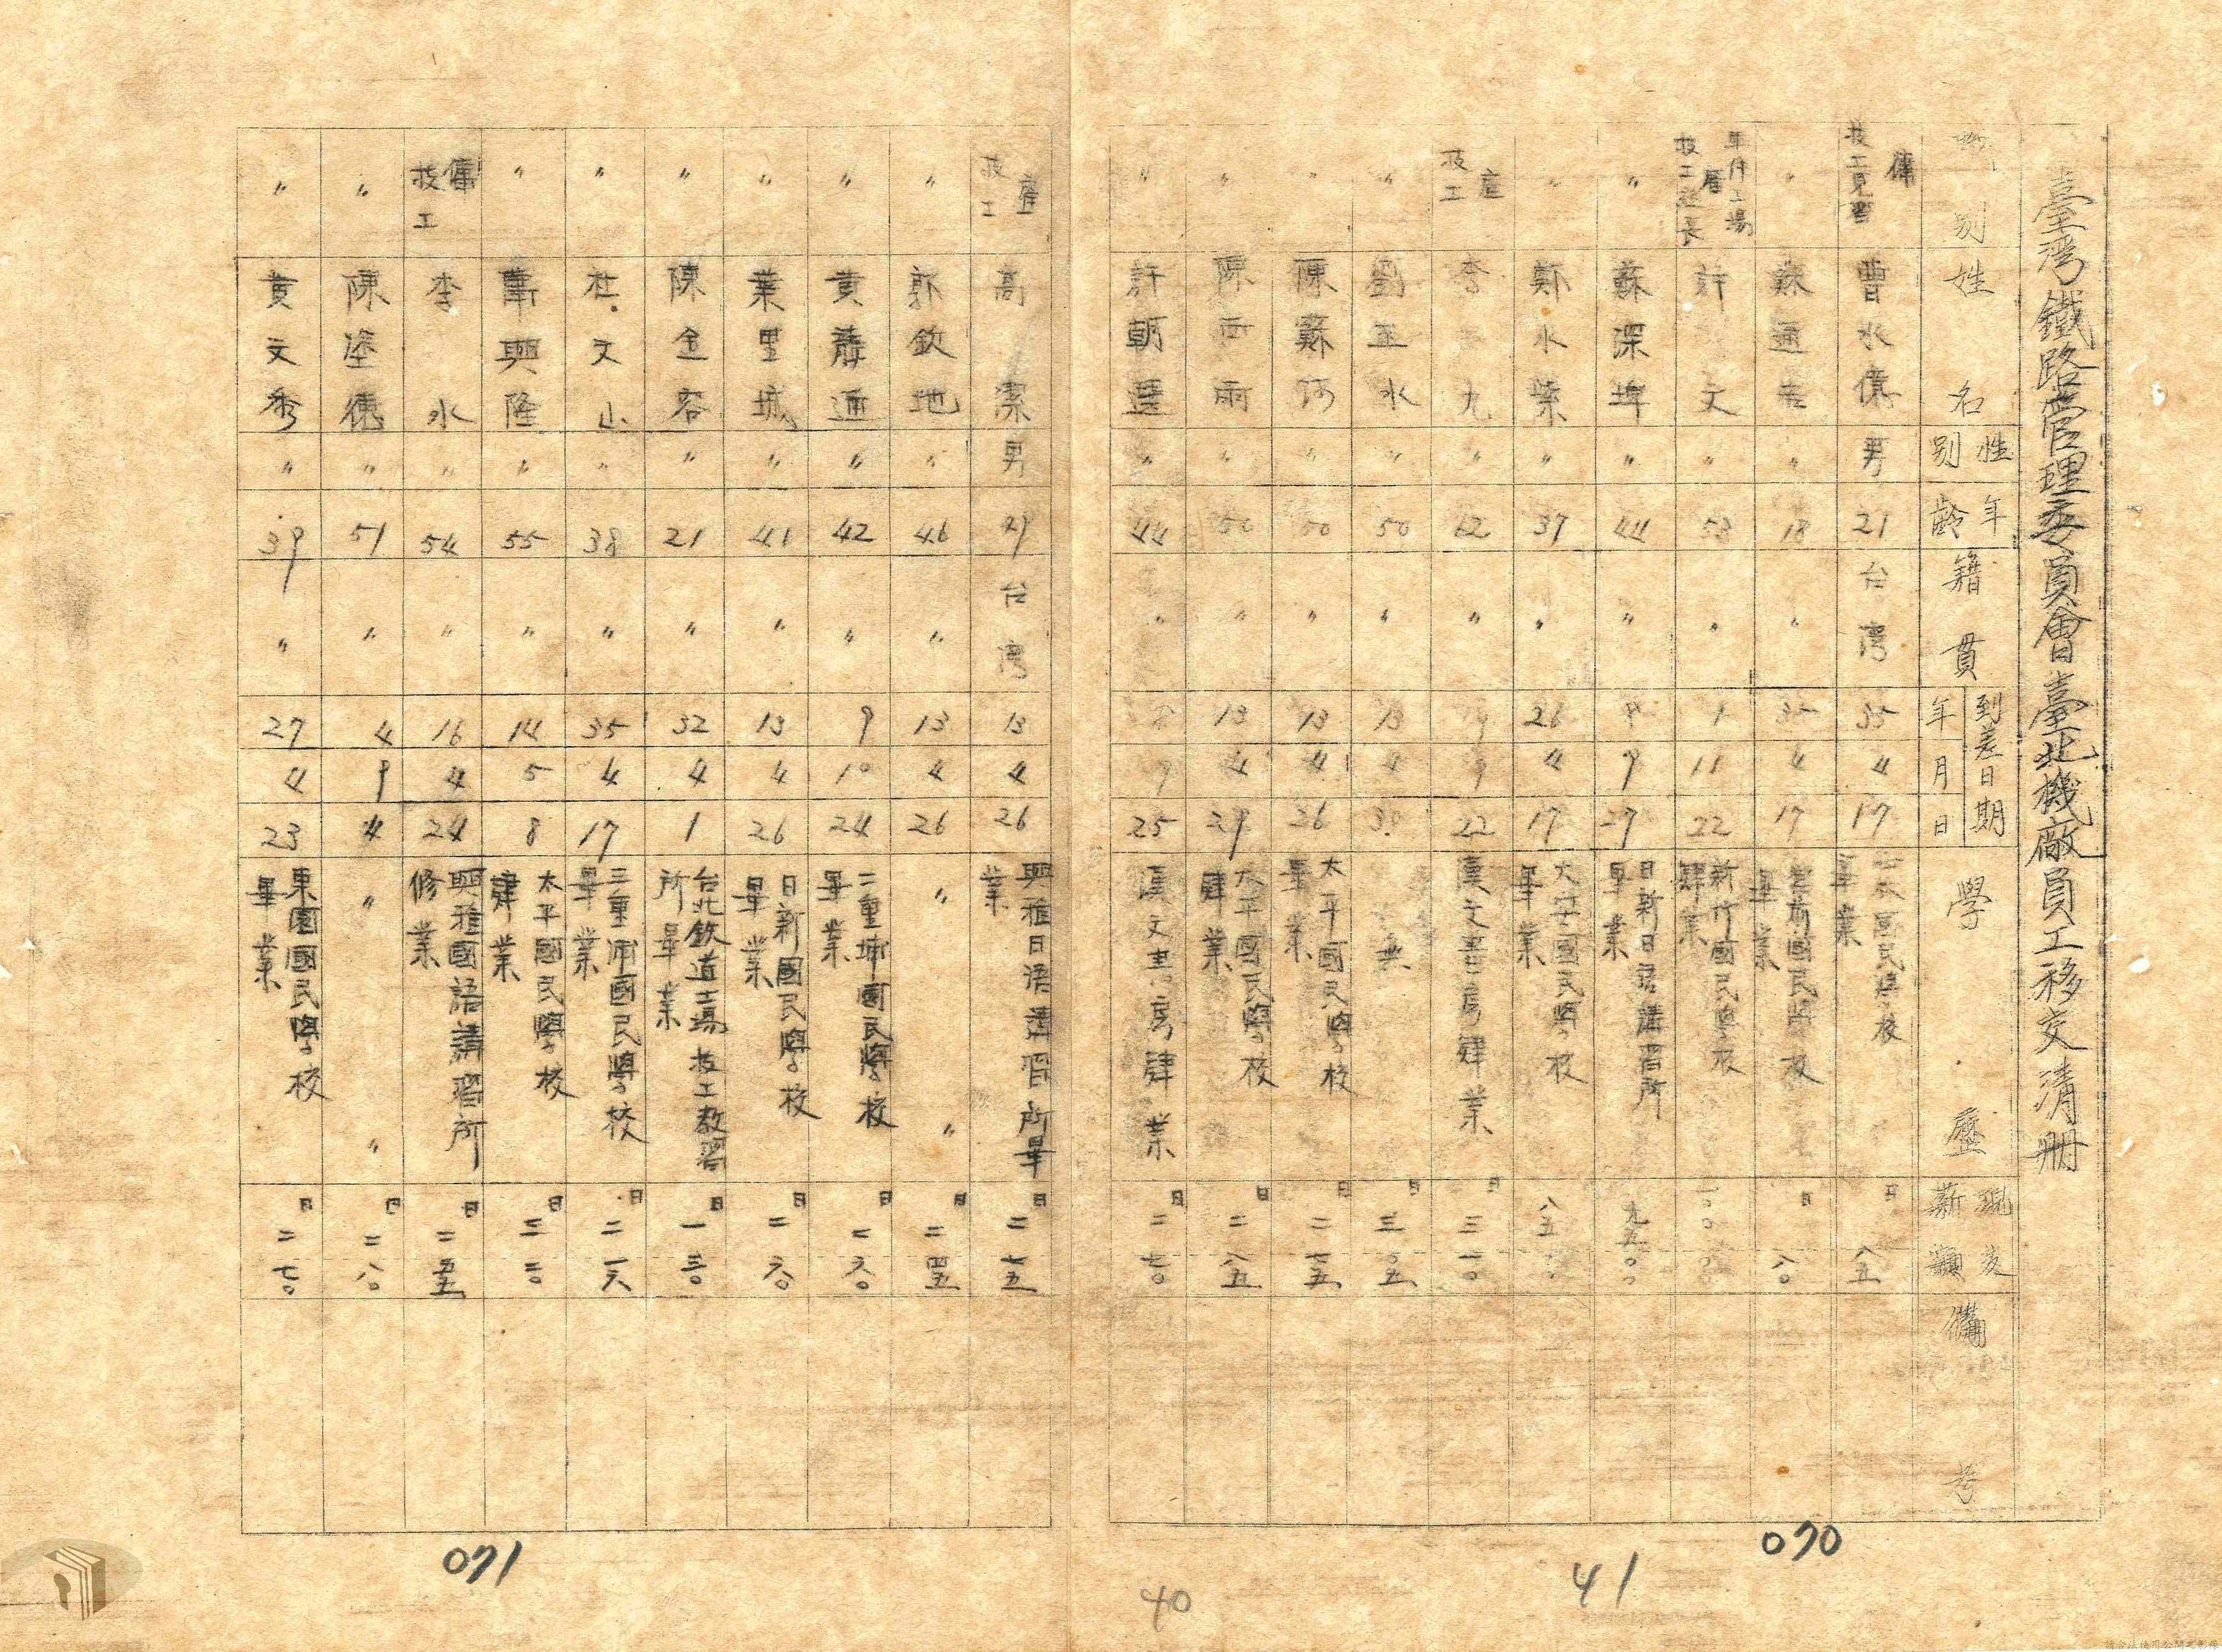 臺灣鐵路管理委員會臺北機廠員工移交清册
別
姓名
性別
年齡
籍貫
到差日期
年
月
日
學歷
現支薪額
備考
傭 技工見習 曹水 男 21 台灣 35 4 17 國民學校畢業 日 八五
〃 蘇通 〃 18 〃 35 4 17 國民學校畢業 日 八〇
許文 〃 53 〃 1 11 22 新竹國民學校肄業 一〇〇
〃 蘇深埤 〃 44 〃 9 27 日新日語講習所畢業 九五〇〇
〃 鄭水 〃 37 〃 26 4 17 大安國民學校畢業 八五
雇 技工 李九 〃 62 〃 9 22 漢文書房肄業 日 三一〇
〃 劉正水 〃 50 〃 13 4 30 無 日 三〇五
〃 陳蘇 〃 50 〃 13 4 26 太平國民學校畢業 日 二五五
〃 陳雨 〃 50 〃 13 4 29 太平國民學校肄業 日 二八五
〃 許朝選 〃 44 〃 9 25 漢文書房肄業 日 二七〇
070
41
40
雇 技工 高潔 男 49 台灣 13 4 26 興雅日語講習所畢業 日 二七五
〃 郭欽地 〃 46 〃 13 4 26 〃 〃 日 二四五
〃 黃壽通 〃 42 〃 9 10 24 二重埔國民學校畢業 日 二六〇
〃 葉里城 〃 41 〃 13 4 26 日新國民學校畢業 日 二六〇
〃 陳金容 〃 21 〃 32 4 1 台北鉄道工場技工教習所畢業 日 一三〇
〃 杜文山 〃 38 〃 35 4 17 三重埔國民學校畢業 日 二一六
〃 蕭興隆 〃 55 〃 14 5 8 太平國民學校肄業 日 三二〇
傭 技工 李水 〃 54 〃 16 4 24 興雅國語講習所修業 日 二五五
〃 陳塗 〃 51 〃 4 9 4 〃 〃 日 二八〇
〃 黃文秀 〃 39 〃 27 4 23 東園國民學校畢業 日 二七〇
071